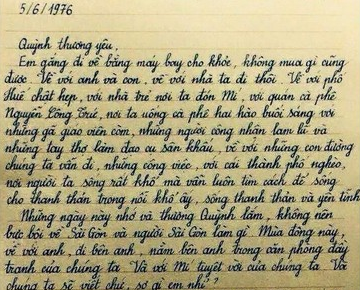 5/6/1976
Quỳnh thương yêu,
Em gắng đi về bằng máy bay cho khỏe, không mua gì cũng
được. Về với anh và con, về với nhà ta đi thôi. Về với phố
Huế chật hẹp, với nhà trẻ nơi ta đón Mí, với quán cà phê
Nguyễn Công Trứ, nơi ta uống cà phê hai hào buổi sáng với
những gã giáo viên còm, những người công nhân lam lũ và
những tay thợ làm dao cu sân khấu, về với những con đường
chúng ta vẫn đi, những công việc, với cái thành phố nghèo,
nơi người ta sống rất khổ mà vẫn luôn tìm cách để sống
cho thanh thản trong nỗi khổ ấy, sống thanh thản và yên tĩnh
Những ngày này nhớ và thương Quỳnh lắm, không nên
bực bội về Sài Gòn và người Sài Gòn làm gì. Mùa đông này,
về với anh, đi bên anh, nằm bên anh trong căn phòng đầy
tranh của chúng ta. Và với Mí tuyệt vời của chúng ta. Và
chúng ta sẽ viết chứ, sợ gì em nhỉ?